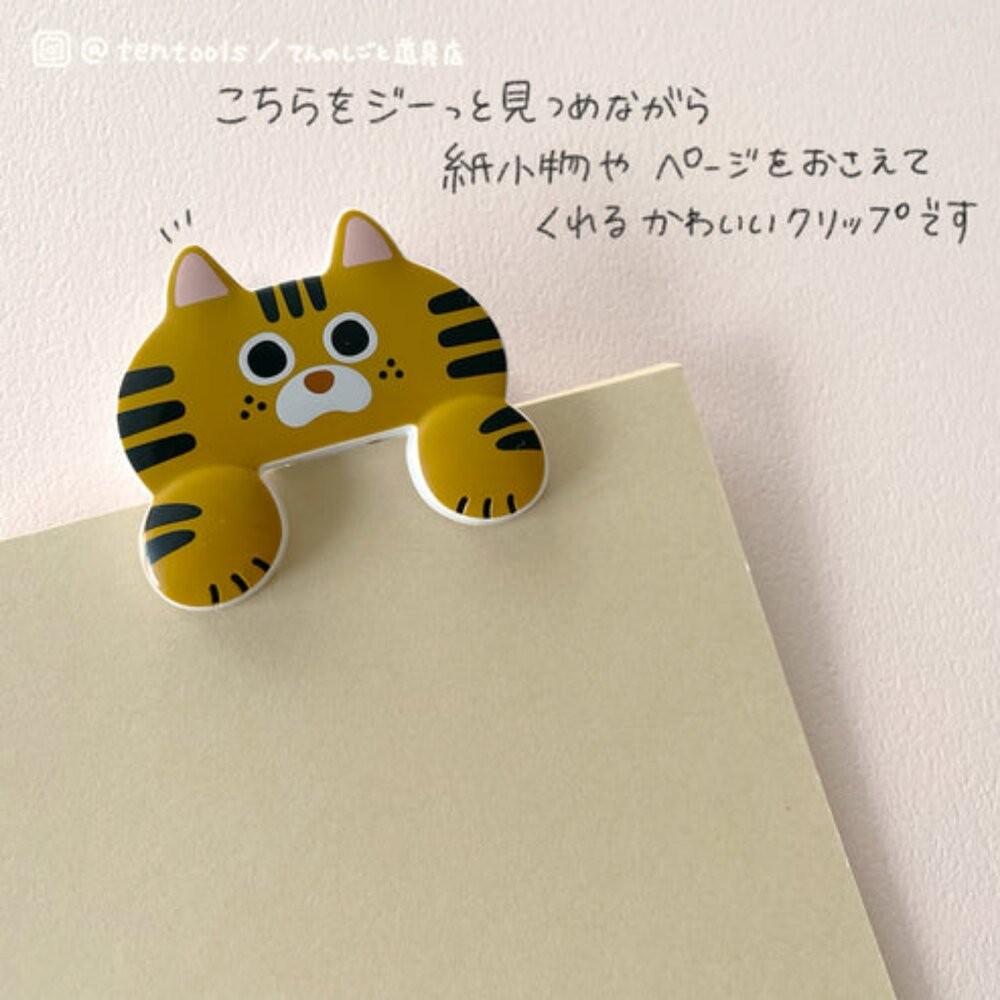 @tentools/てんのしごと道具店
こちらをジーっと見つめながら
紙小物や ページをおさえて
くれる かわいいクリップです